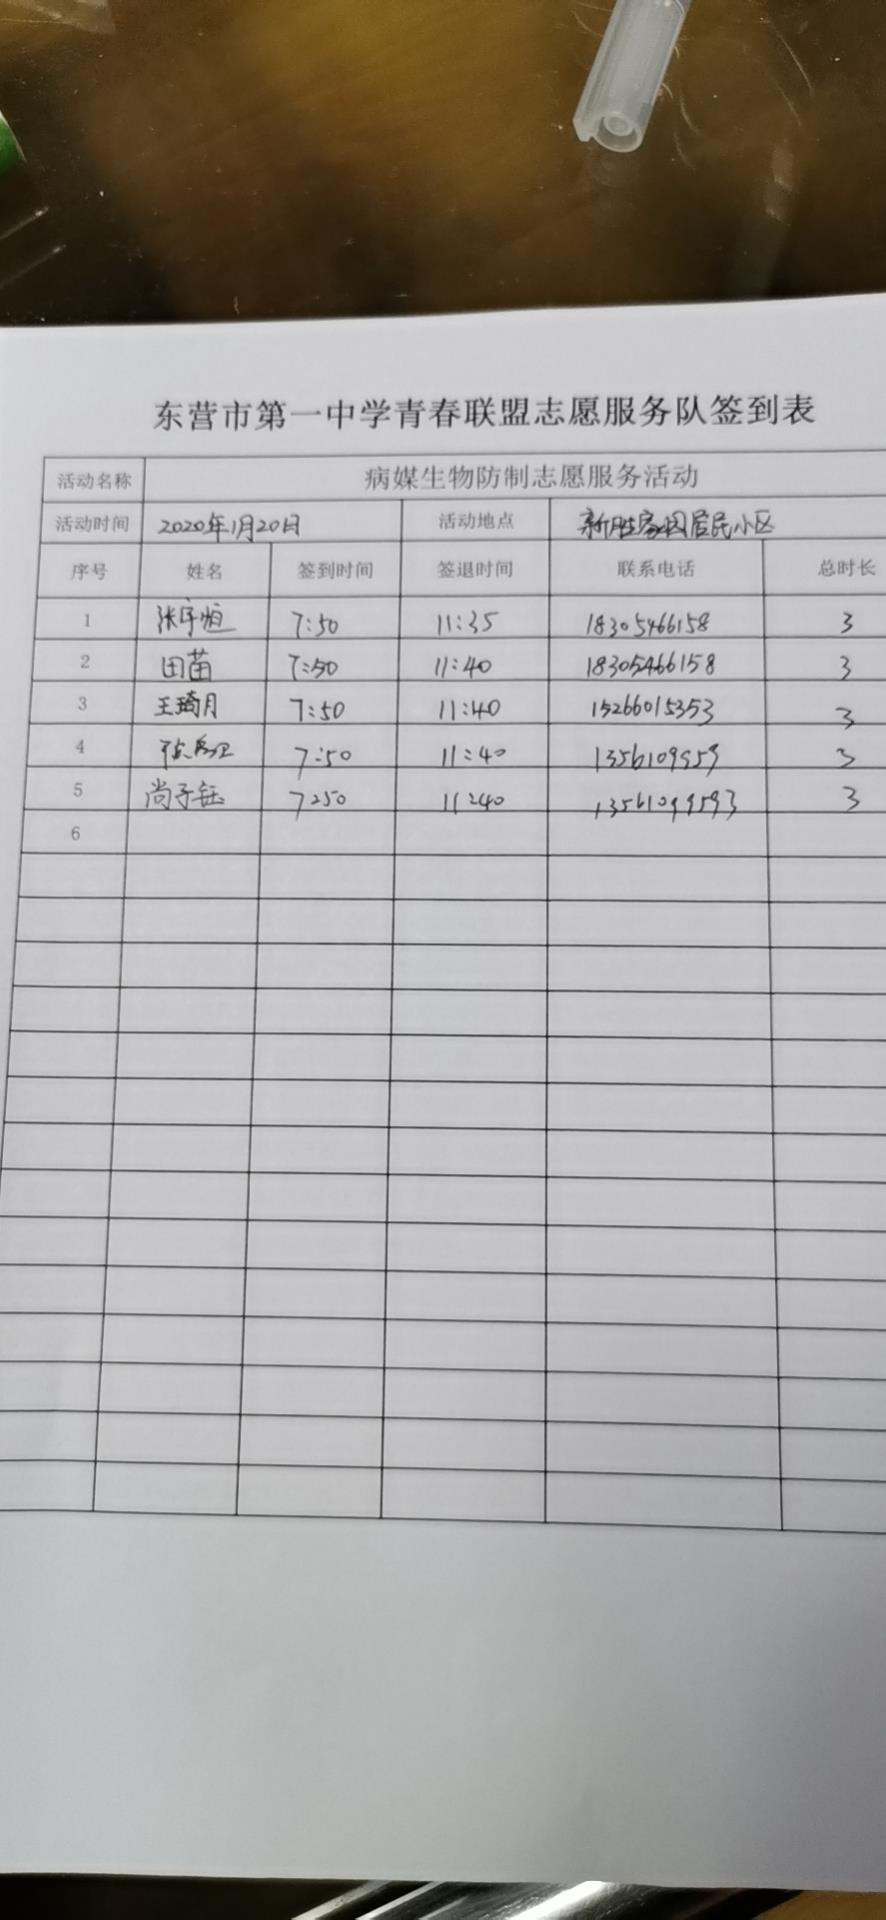 东营市第一中学青春联盟志愿服务队签到表
活动名称 病媒生物防制志愿服务活动
活动时间 2020年1月20日 活动地点 新胜家园居民小区
序号 姓名 签到时间 签退时间 联系电话 总时长
1 张宇恒 7:50 11:35 18305466158 3
2 田苗 7:50 11:40 18305466158 3
3 王琦月 7:50 11:40 15266015353 3
4 7:50 11:40 1356109959 3
5 尚子钰 7:50 11:40 13561099593 3
6